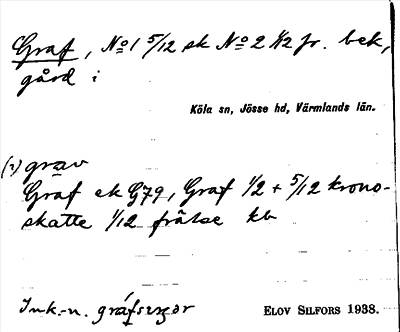 Graf, No 1 5/12 sk No 2 1/12 fr. bek,
gård i
Köla sn, Jösse hd, Värmlands län.
(1) grav
Graf ek G79, Graf 1/2 + 5/12 krono-
skatte 1/12 frälse kb
Ink.-n. gráf
ELOV SILFORS 1938.